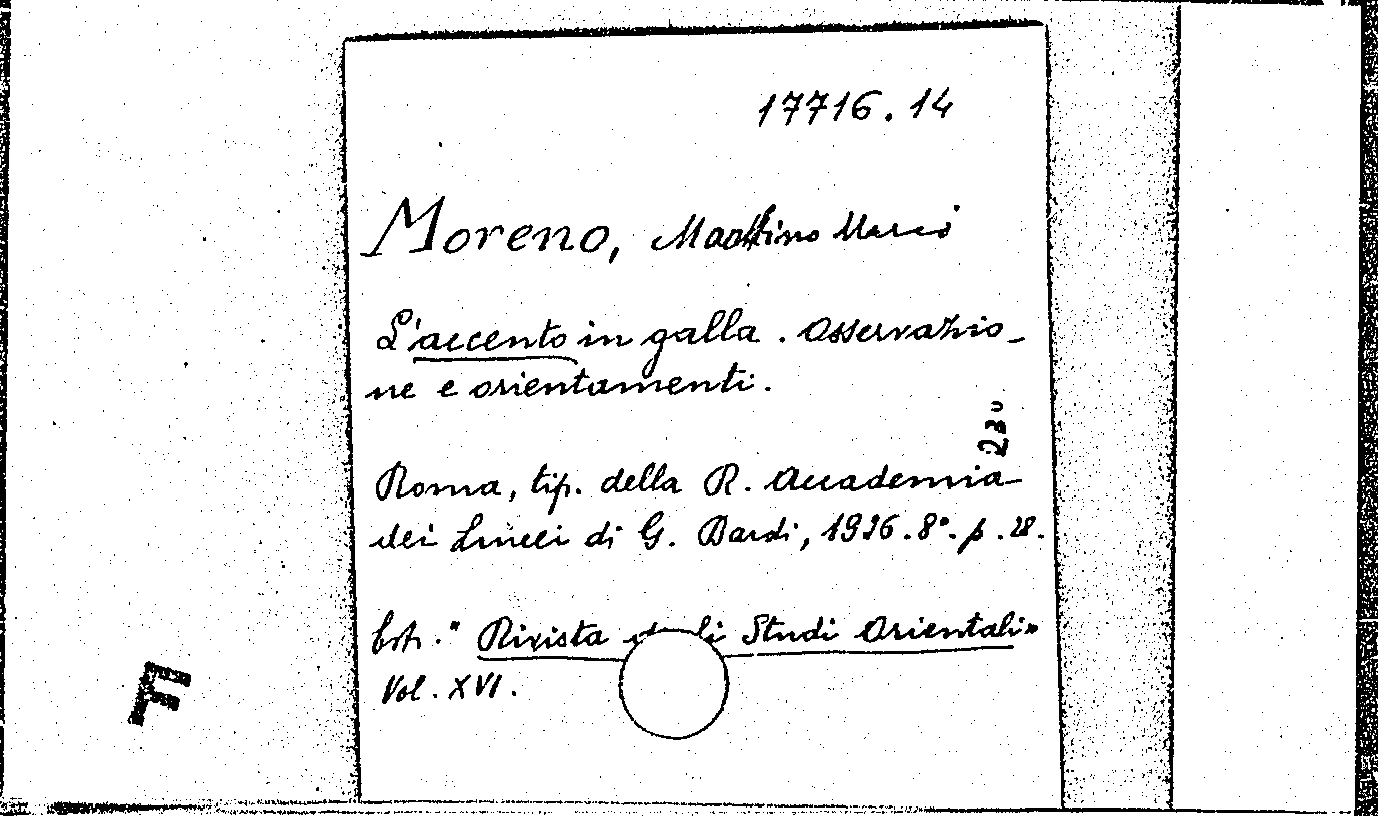 17716.14
Moreno, Martino Mario
L'accento in galla. Osservazio-
ne e orientamenti.
230
Roma, tip. della R. Accademia
dei Lincei di G. Bardi, 1936.8°. p. 28.
Estr. "Rivista degli Studi Orientali"
Vol. XVI.
F